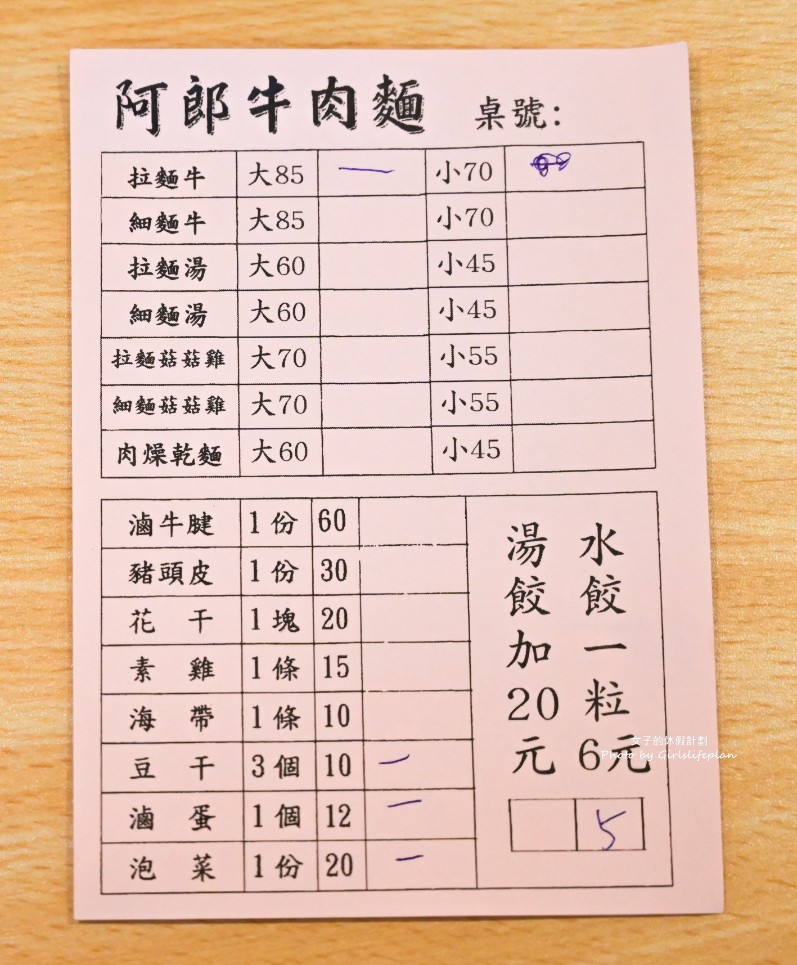 阿郎牛肉麵 桌號:
拉麵牛 大85 一 小70
細麵牛 大85 小70
拉麵湯 大60 小45
細麵湯 大60 小45
拉麵菇菇雞 大70 小55
細麵菇菇雞 大70 小55
肉燥乾麵 大60 小45
滷牛腱 1份 60
豬頭皮 1份 30
花干 1塊 20
素雞 1條 15
海帶 1條 10
豆干 3個 10 一
滷蛋 1個 12 一
泡菜 1份 20 一
水餃一粒6元
湯餃加20元
5
女子的休假計劃
Photo by Girlslifeplan